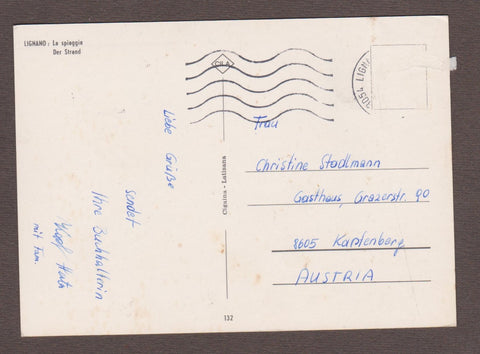 LIGNANO: La spiaggia
Der Strand
CILA
33054 LIGNA
Liebe Grüße
sendet
Ihre Buchhalterin
mit Fam.
Ciguina - Latisana
132
Frau
Christine Stadlmann
Gasthaus, Grazerstr. 90
8605 Kapfenberg
AUSTRIA